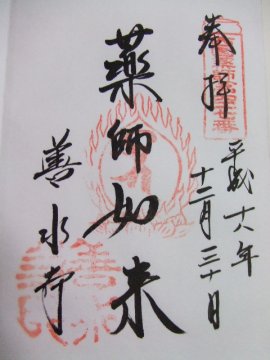 奉拝
平成十八年
十二月三十日
薬師如来
善水寺